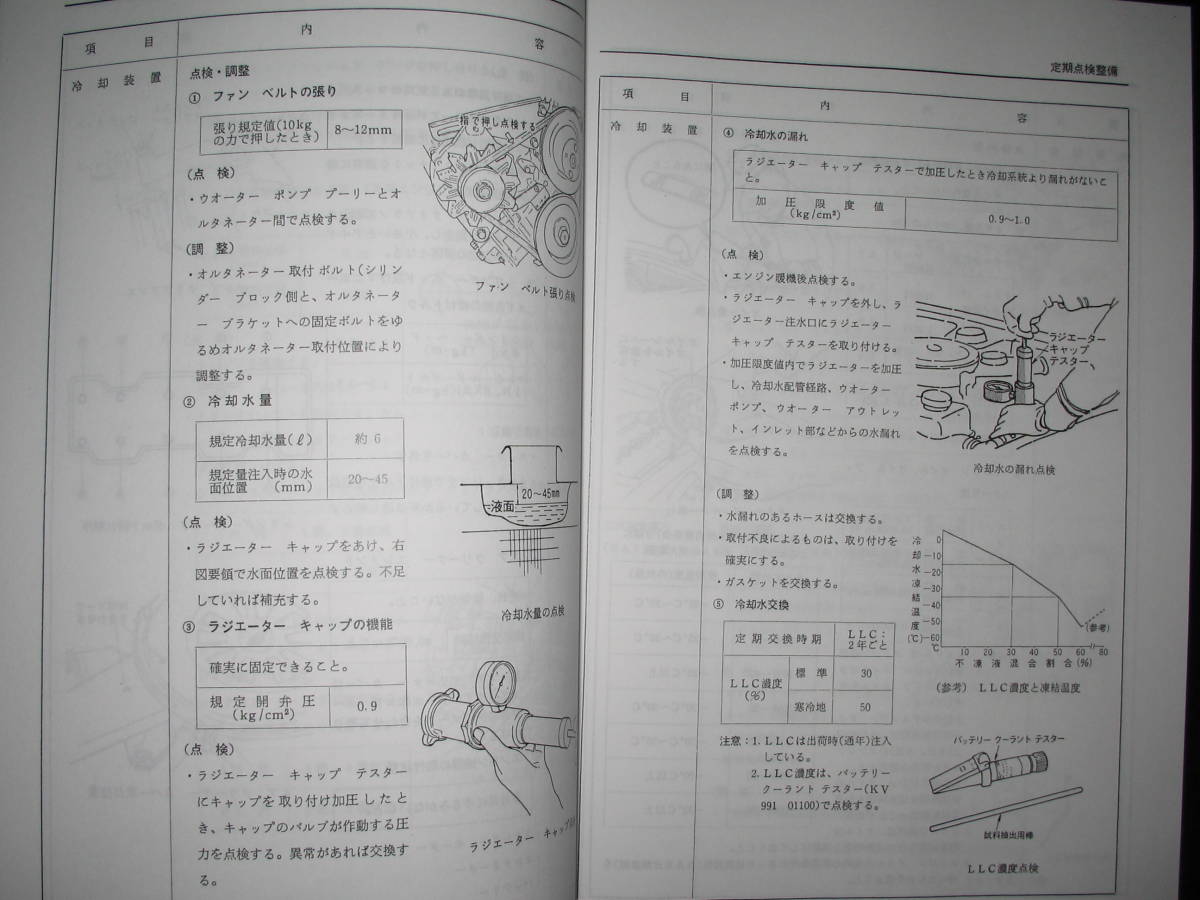 項 目 内 容
冷却装置
点検・調整
① ファン ベルトの張り
張り規定値(10kg
の力で押したとき) 8～12mm
(点 検)
・ウオーター ポンプ プーリーとオ
ルタネーター間で点検する。
(調 整)
・オルタネーター取付ボルト(シリン
ダー ブロック側と、オルタネータ
ー ブラケットへの固定ボルトをゆ
るめオルタネーター取付位置により
調整する。
指で押し点検する
ファン ベルト張り点検
② 冷却水量
規定冷却水量(ℓ) 約6
規定量注入時の水
面位置 (mm) 20～45
(点 検)
・ラジエーター キャップをあけ、右
図要領で水面位置を点検する。不足
していれば補充する。
20～45mm
液面
冷却水量の点検
③ ラジエーター キャップの機能
確実に固定できること。
規定開弁圧
(kg/cm²) 0.9
(点 検)
・ラジエーター キャップ テスター
にキャップを取り付け加圧したと
き、キャップのバルブが作動する圧
力を点検する。異常があれば交換す
る。
ラジエーター キャップ
定期点検整備
項 目 内 容
冷却装置
④ 冷却水の漏れ
ラジエーター キャップ テスターで加圧したとき冷却系統より漏れがないこ
と。
加圧限度値
(kg/cm²) 0.9～1.0
(点 検)
・エンジン暖機後点検する。
・ラジエーター キャップを外し、ラ
ジエーター注水口にラジエーター
キャップ テスターを取り付ける。
・加圧限度値内でラジエーターを加圧
し、冷却水配管経路、ウオーター
ポンプ、ウオーター アウトレッ
ト、インレット部などからの水漏れ
を点検する。
ラジエーター
キャップ
テスター
冷却水の漏れ点検
(調 整)
・水漏れのあるホースは交換する。
・取付不良によるものは、取り付けを
確実にする。
・ガスケットを交換する。
⑤ 冷却水交換
定期交換時期 LLC：
2年ごと
LLC濃度
(%) 標準 30
寒冷地 50
注意：1. LLCは出荷時(通年)注入
している。
2. LLC濃度は、バッテリー
クーラント テスター(KV
991 01100)で点検する。
冷却水凍結温度(℃)
0
-10
-20
-30
-40
-50
-60
℃
10 20 30 40 50 60 80
不凍液混合割合(%)
(参考)
(参考) LLC濃度と凍結温度
バッテリー クーラント テスター
試料抽出用棒
LLC濃度点検